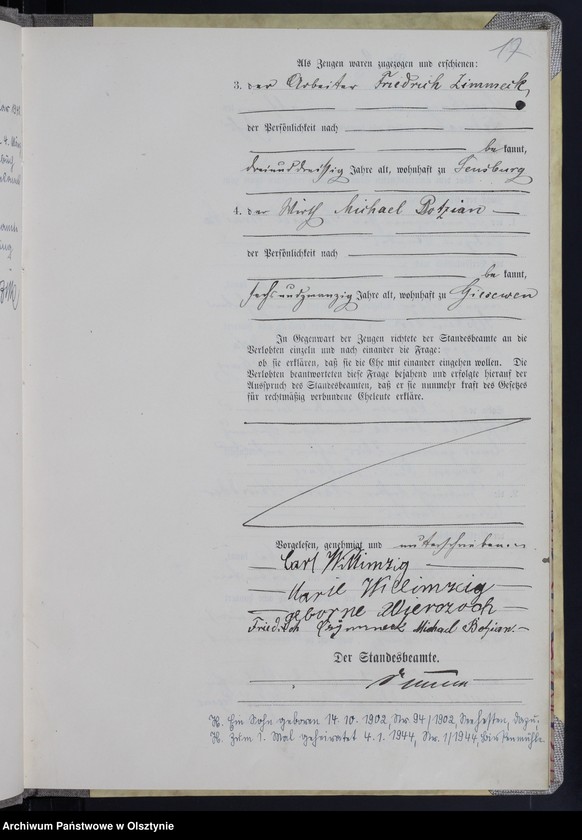 17
Als Zeugen waren zugezogen und erschienen:
3. der Arbeiter Friedrich Zimmeck,
der Persönlichkeit nach
be kannt,
dreiunddreißig Jahre alt, wohnhaft zu Sensburg
4. der Wirth Michael Botzian
der Persönlichkeit nach
be kannt,
sechsundzwanzig Jahre alt, wohnhaft zu Giesewen
In Gegenwart der Zeugen richtete der Standesbeamte an die
Verlobten einzeln und nach einander die Frage:
ob sie erklären, daß sie die Ehe mit einander eingehen wollen. Die
Verlobten beantworteten diese Frage bejahend und erfolgte hierauf der
Ausspruch des Standesbeamten, daß er sie nunmehr kraft des Gesetzes
für rechtmäßig verbundene Eheleute erkläre.
Vorgelesen, genehmigt und unterschrieben
Carl Willimzig
Willimzig
geborne
Friedrich Michael Botzian.
Der Standesbeamte.
Ein Sohn geboren 14. 10. 1902, Nr. 94/1902, Seehesten,
zum 1. Mal geheiratet 4. 1. 1944, Nr. 1/1944,
Archiwum Państwowe w Olsztynie